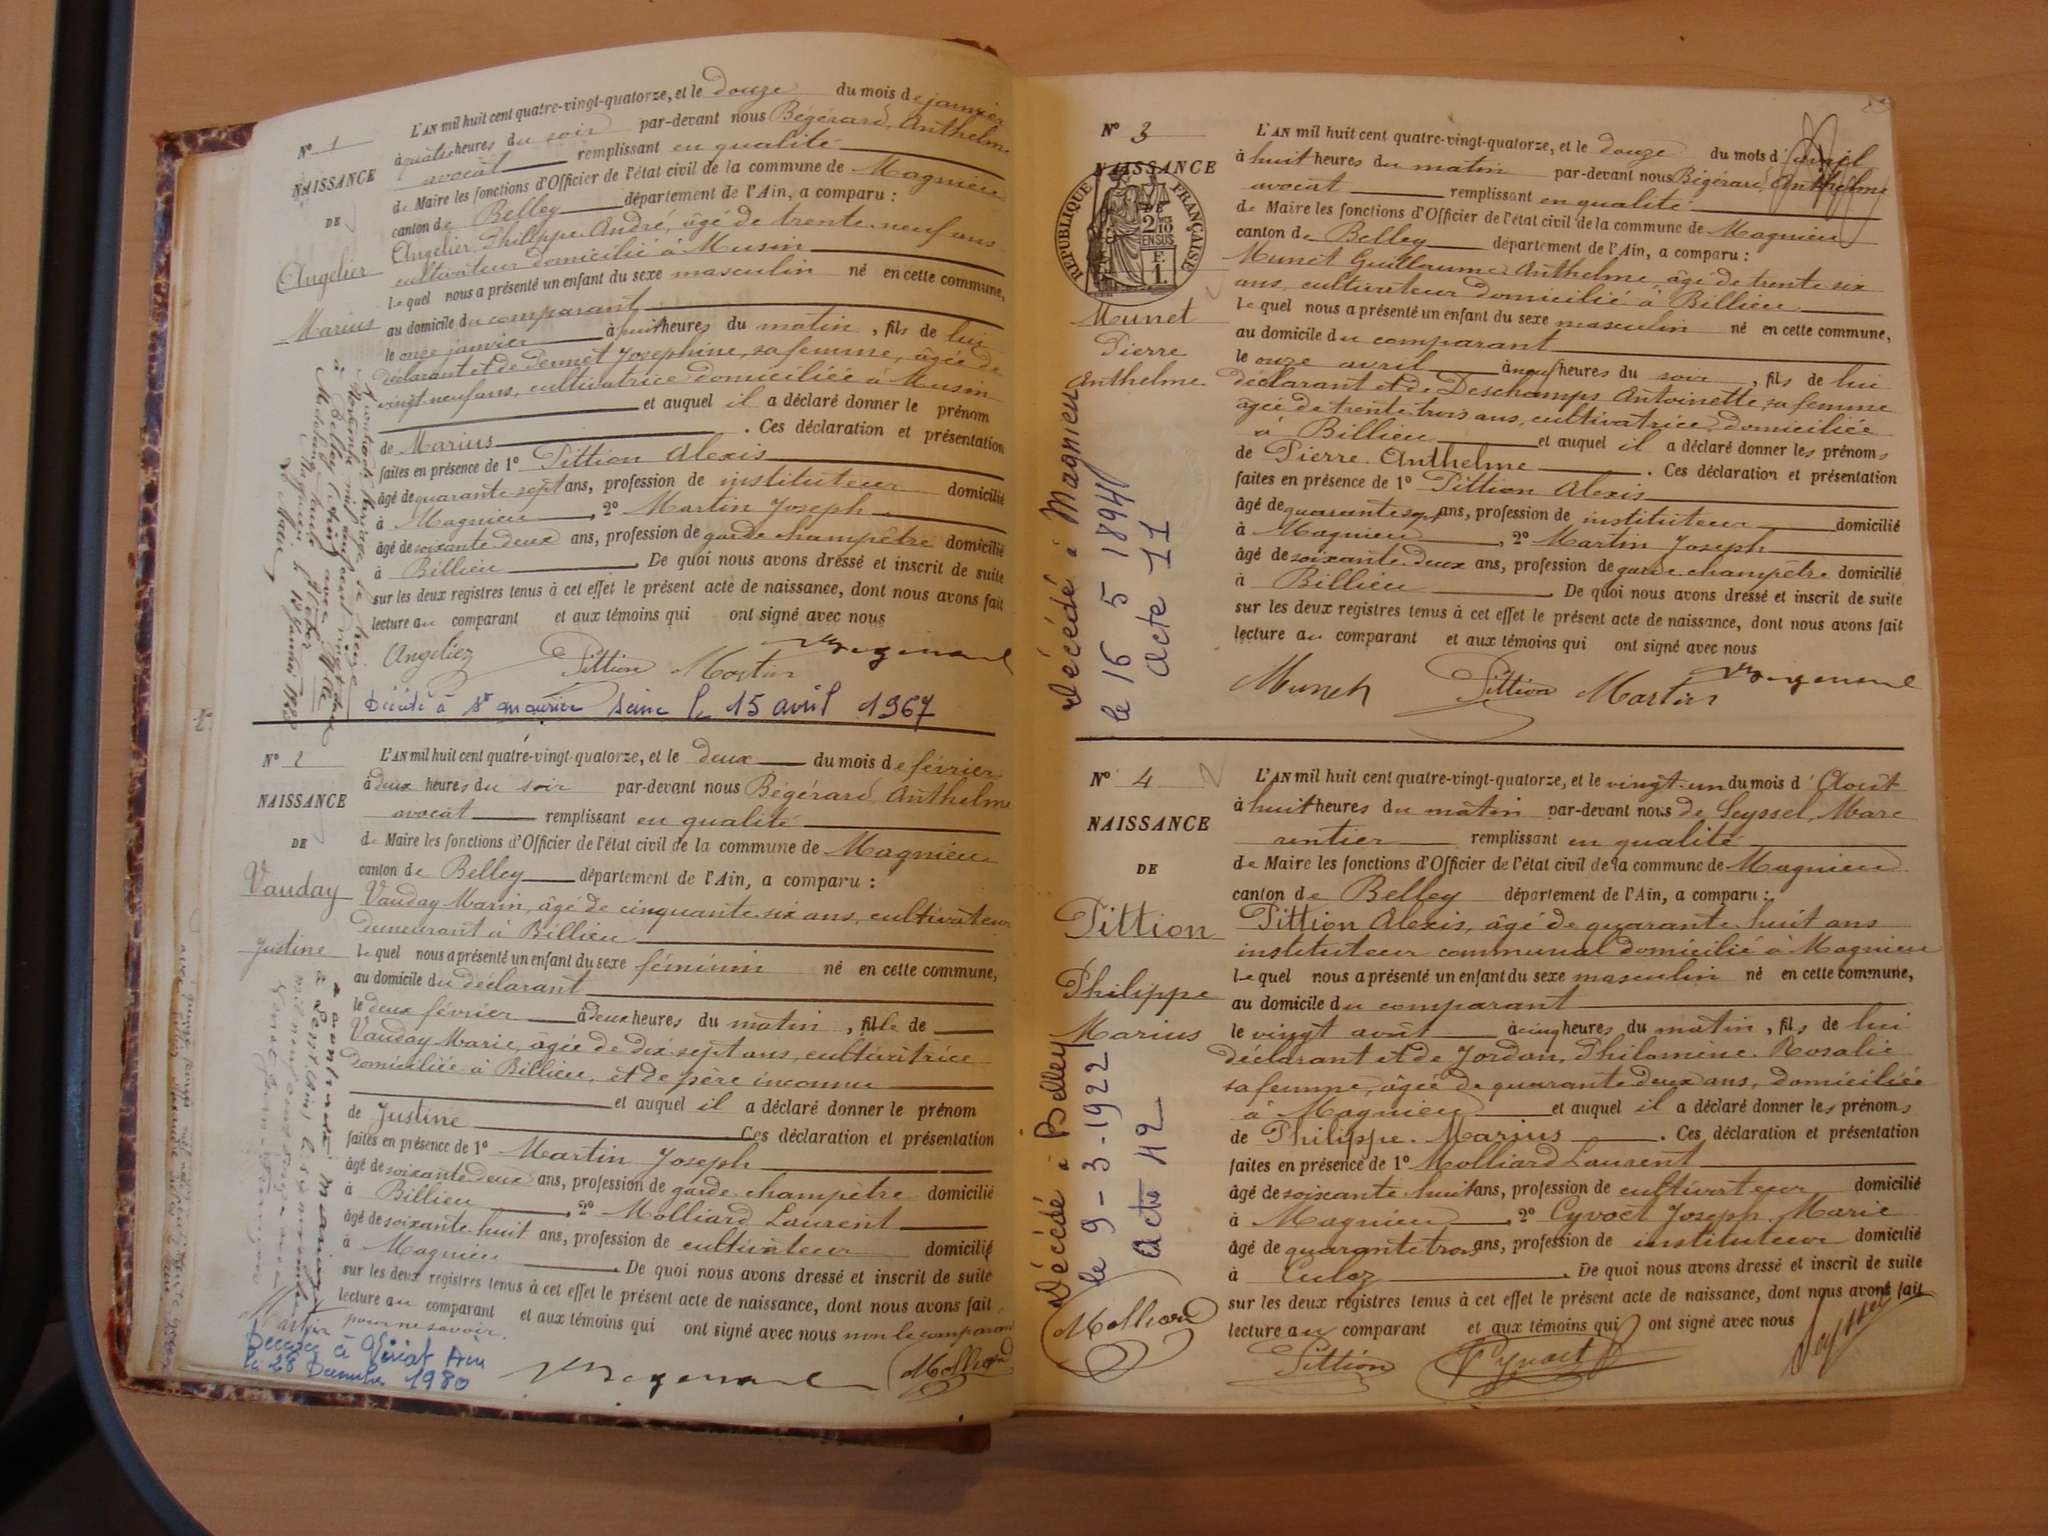 N° 1
NAISSANCE
DE
Angelier
Marius
L'AN mil huit cent quatre-vingt-quatorze, et le douze du mois de janvier
à quatre heures du soir par-devant nous Bégérard, Anthelme
avocat remplissant en qualité
de Maire les fonctions d'Officier de l'état civil de la commune de Magnieu
canton de Belley département de l'Ain, a comparu :
Angelier Philippe André, âgé de trente neuf ans
cultivateur domicilié à Musin
Le quel nous a présenté un enfant du sexe masculin né en cette commune,
au domicile du comparant
le onze janvier à huit heures du matin, fils de lui
déclarant et de Pernet Josephine, sa femme, âgée de
vingt-neuf ans, cultivatrice domiciliée à Musin
et auquel il a déclaré donner le prénom
de Marius. Ces déclaration et présentation
faites en présence de 1° Pittion Alexis
âgé de quarante sept ans, profession de instituteur domicilié
à Magnieu, 2° Martin Joseph
âgé de soixante deux ans, profession de garde champêtre domicilié
à Billieu. De quoi nous avons dressé et inscrit de suite
sur les deux registres tenus à cet effet le présent acte de naissance, dont nous avons fait
lecture au comparant et aux témoins qui ont signé avec nous
Angelier Pittion Martin
Décédé à St Maurice Seine le 15 avril 1967
N° 2
NAISSANCE
DE
Vauday
Justine
L'AN mil huit cent quatre-vingt-quatorze, et le deux du mois de février
à deux heures du soir par-devant nous Bégérard, Anthelme
avocat remplissant en qualité
de Maire les fonctions d'Officier de l'état civil de la commune de Magnieu
canton de Belley département de l'Ain, a comparu :
Vauday Marin, âgé de cinquante six ans, cultivateur
demeurant à Billieu
Le quel nous a présenté un enfant du sexe féminin né en cette commune,
au domicile du déclarant
le deux février à deux heures du matin, fille de
Vauday Marie, âgée de dix sept ans, cultivatrice
domiciliée à Billieu, et de père inconnu
et auquel il a déclaré donner le prénom
de Justine Ces déclaration et présentation
faites en présence de 1° Martin Joseph
âgé de soixante deux ans, profession de garde champêtre domicilié
à Billieu, 2° Molliard Laurent
âgé de soixante huit ans, profession de cultivateur domicilié
à Magnieu. De quoi nous avons dressé et inscrit de suite
sur les deux registres tenus à cet effet le présent acte de naissance, dont nous avons fait
lecture au comparant et aux témoins qui ont signé avec nous non le comparant
pour ne savoir.
Martin
Molliard
Décédée à Viriat Ain
le 28 Décembre 1980
N° 3
NAISSANCE
RÉPUBLIQUE FRANÇAISE
2/10
EN SUS
F.
1.
Munet
Pierre
Anthelme
Décédé à Magnieu
le 16 5 1894
acte 11
L'AN mil huit cent quatre-vingt-quatorze, et le douze du mois d'avril
à huit heures du matin par-devant nous Bégérard, Anthelme
avocat remplissant en qualité
de Maire les fonctions d'Officier de l'état civil de la commune de Magnieu
canton de Belley département de l'Ain, a comparu :
Munet Guillaume Anthelme, âgé de trente six
ans, cultivateur domicilié à Billieu
Le quel nous a présenté un enfant du sexe masculin né en cette commune,
au domicile du comparant
le onze avril à neuf heures du soir, fils de lui
déclarant et de Deschamps Antoinette, sa femme
âgée de trente-trois ans, cultivatrice domiciliée
à Billieu et auquel il a déclaré donner les prénoms
de Pierre Anthelme. Ces déclaration et présentation
faites en présence de 1° Pittion Alexis
âgé de quarante sept ans, profession de instituteur domicilié
à Magnieu, 2° Martin Joseph
âgé de soixante deux ans, profession de garde champêtre domicilié
à Billieu. De quoi nous avons dressé et inscrit de suite
sur les deux registres tenus à cet effet le présent acte de naissance, dont nous avons fait
lecture au comparant et aux témoins qui ont signé avec nous
Munet Pittion Martin
N° 4
NAISSANCE
DE
Pittion
Philippe
Marius
Décédé à Belley
le 9-3-1922
acte 42
L'AN mil huit cent quatre-vingt-quatorze, et le vingt-un du mois d'Août
à huit heures du matin par-devant nous de Seyssel, Marc
rentier remplissant en qualité
de Maire les fonctions d'Officier de l'état civil de la commune de Magnieu
canton de Belley département de l'Ain, a comparu :
Pittion Alexis, âgé de quarante huit ans
instituteur communal domicilié à Magnieu
Le quel nous a présenté un enfant du sexe masculin né en cette commune,
au domicile du comparant
le vingt août à cinq heures du matin, fils de lui
déclarant et de Jordan, Philomène Rosalie
sa femme, âgée de quarante deux ans, domiciliée
à Magnieu et auquel il a déclaré donner les prénoms
de Philippe Marius. Ces déclaration et présentation
faites en présence de 1° Molliard Laurent
âgé de soixante huit ans, profession de cultivateur domicilié
à Magnieu, 2° Cyvoct Joseph Marie
âgé de quarante trois ans, profession de instituteur domicilié
à Culoz. De quoi nous avons dressé et inscrit de suite
sur les deux registres tenus à cet effet le présent acte de naissance, dont nous avons fait
lecture au comparant et aux témoins qui ont signé avec nous
Molliard Pittion Cyvoct Seyssel